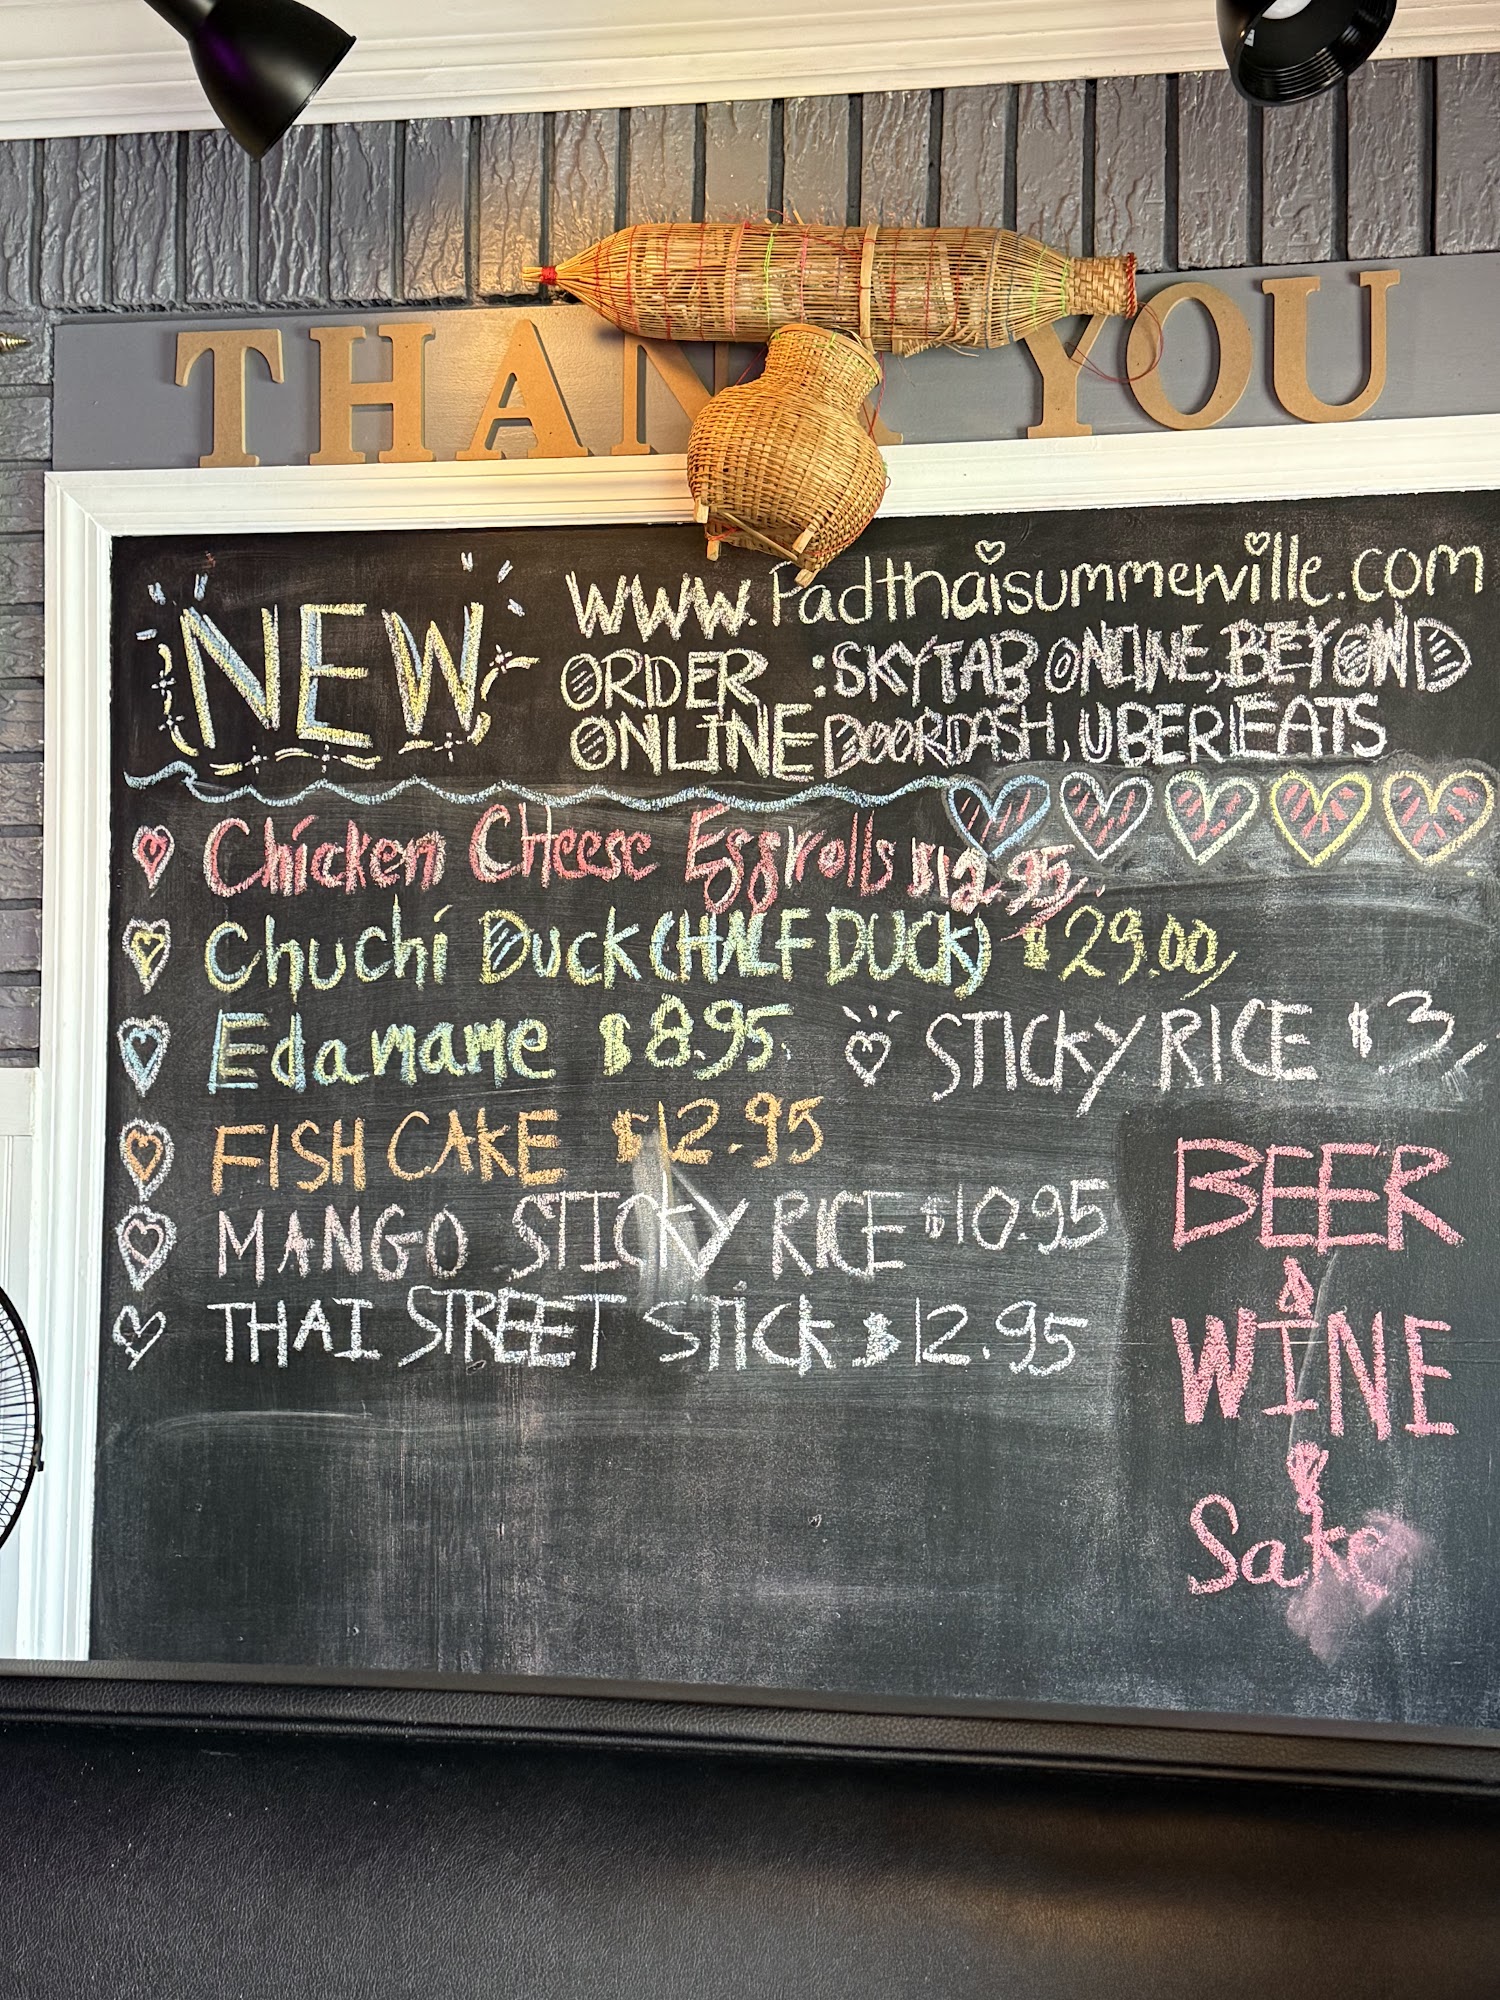 THANK YOU
NEW
www.Padthaisummerville.com
ORDER :SKYTAB ONLINE, BEYOND
ONLINE DOORDASH, UBER EATS
Chicken CHeese Eggrolls $12.95
Chuchi Duck (HALF DUCK) $29.00
Edamame $8.95
STICKY RICE $3
FISH CAKE $12.95
MANGO STICKY RICE $10.95
THAI STREET STICK $12.95
BEER
&
WINE
&
Sake